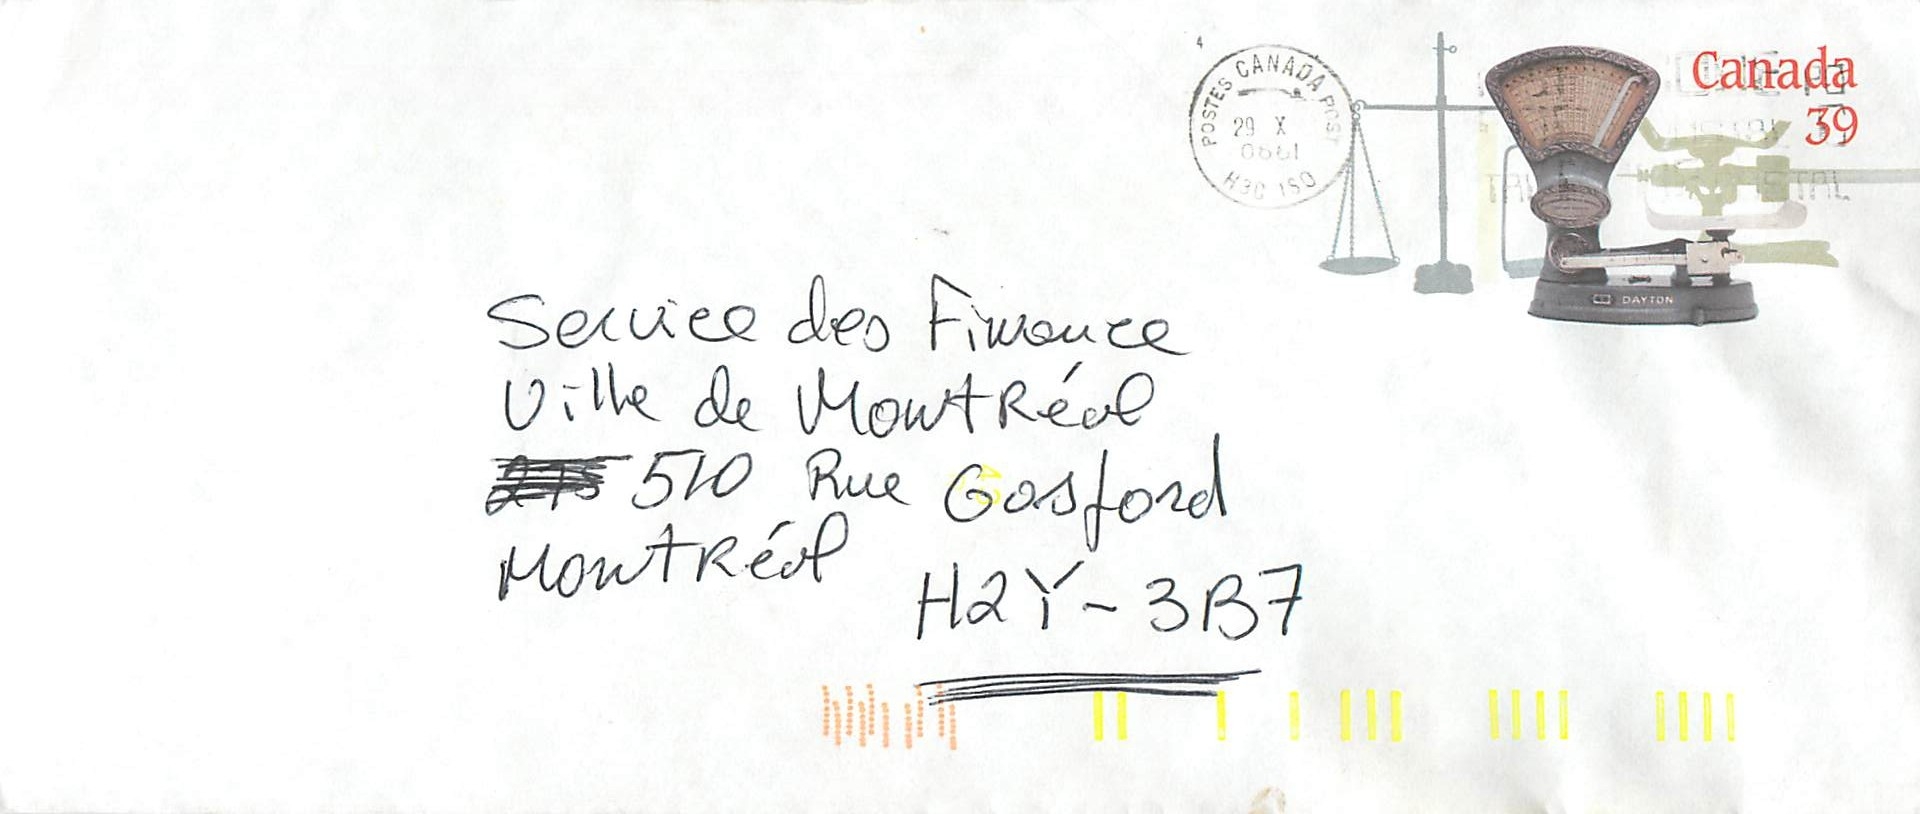 4
POSTES CANADA POST
29 X
H3C 1S0
Canada
39
DAYTON
Service des Finance
Ville de Montréal
510 Rue Gosford
Montréal
H2Y-3B7